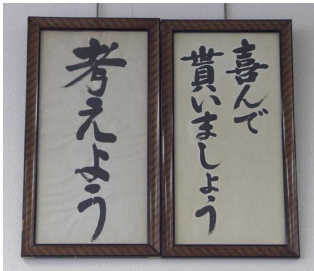 喜んで
貰いましょう
考えよう